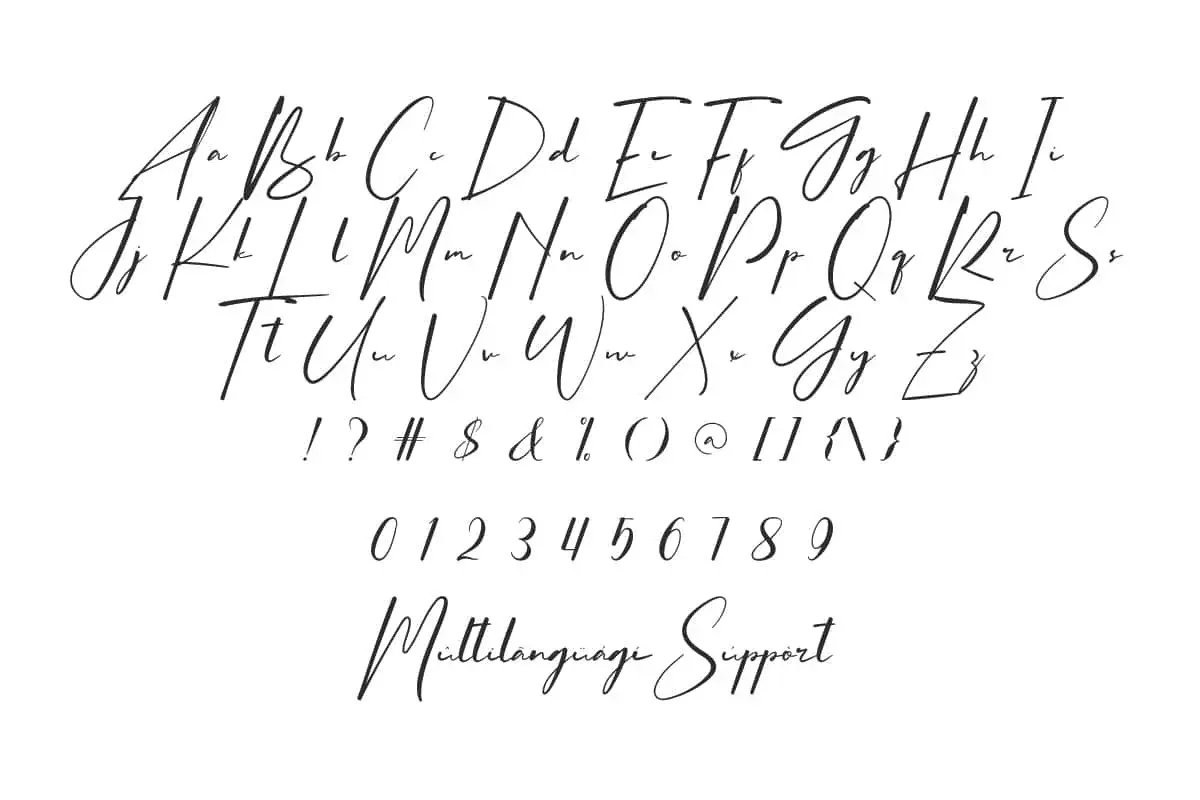 Aa Bb Cc Dd Ee Ff Gg Hh Ii
Jj Kk Ll Mm Nn Oo Pp Qq Rr Ss
Tt Uu Vv Ww Xx Yy Zz
! ? # $ & % ( ) @ [ ] { \ }
0 1 2 3 4 5 6 7 8 9
Múltìlãngüágè Súppòrt